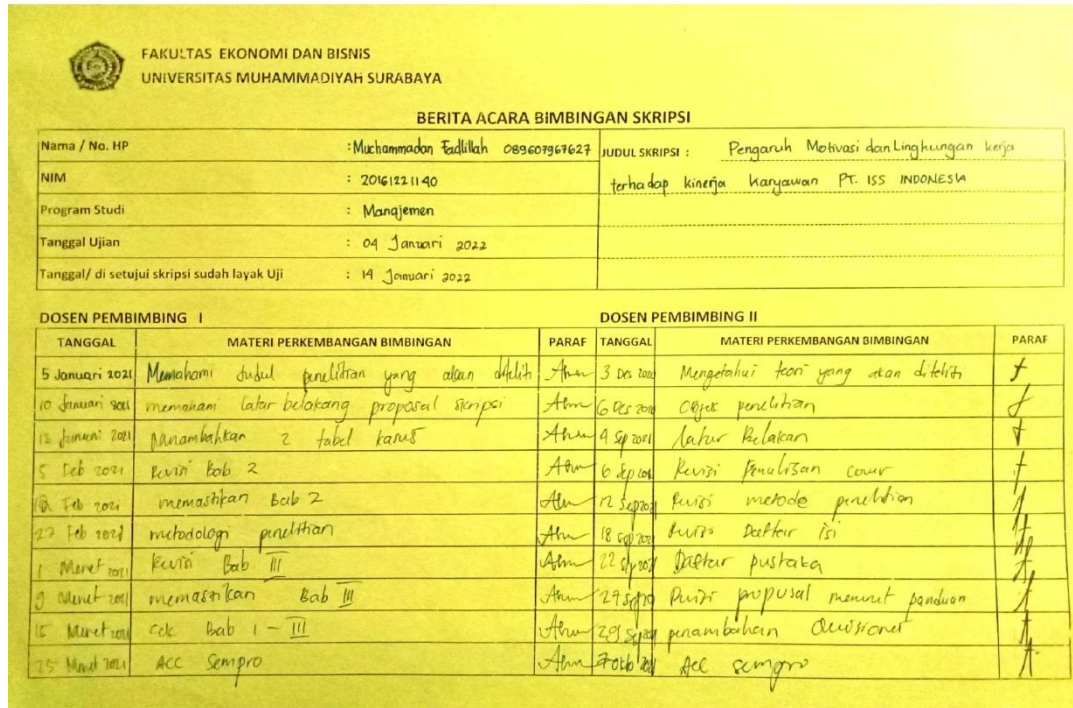 FAKULTAS EKONOMI DAN BISNIS
UNIVERSITAS MUHAMMADIYAH SURABAYA
BERITA ACARA BIMBINGAN SKRIPSI
Nama / No. HP : Muchammadan Fadlillah 089607967627
NIM : 20161221140
Program Studi : Manajemen
Tanggal Ujian : 04 Januari 2022
Tanggal/ di setujui skripsi sudah layak Uji : 14 Januari 2022
JUDUL SKRIPSI : Pengaruh Motivasi dan Lingkungan kerja
terhadap kinerja karyawan PT. ISS INDONESIA
DOSEN PEMBIMBING I
TANGGAL MATERI PERKEMBANGAN BIMBINGAN PARAF
5 Januari 2021 Memahami judul penelitian yang akan diteliti
10 Januari 2021 memahami latar belakang proposal skripsi
13 Januari 2021 Menambahkan 2 tabel kasus
5 Feb 2021 Revisi Bab 2
Feb 2021 memastikan Bab 2
27 Feb 2021 metodologi penelitian
1 Maret 2021 Revisi Bab III
9 Maret 2021 memastikan Bab III
15 Maret 2021 Cek Bab I - III
25 Maret 2021 ACC Sempro
DOSEN PEMBIMBING II
TANGGAL MATERI PERKEMBANGAN BIMBINGAN PARAF
3 Des 2020 Mengetahui teori yang akan diteliti
6 Des 2020 Objek penelitian
9 Sep 2021 latar Belakan
6 Sep 2021 Revisi Penulisan cover
12 Sep 2021 Revisi metode penelitian
18 Sep 2021 Revisi Daftar isi
22 Sep 2021 Daftar pustaka
27 Sep Revisi proposal menurut panduan
29 Sep 2021 penambahan Quisioner
7 Okto Acc sempro